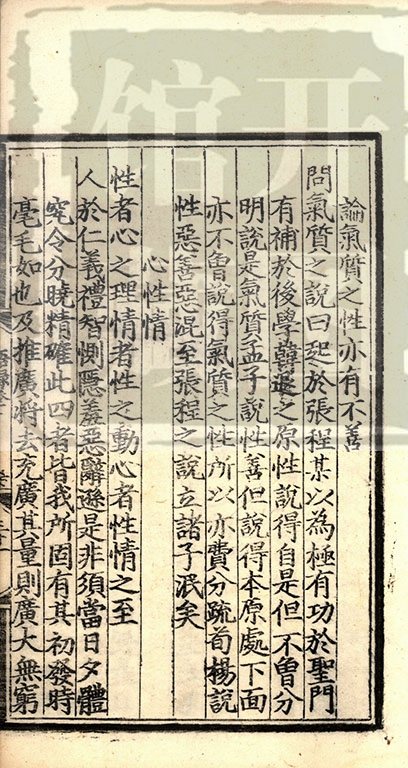 論氣質之性亦有不善
問氣質之說曰起於張程某以為極有功於聖門
有補於後學韓退之原性說得自是但不曾分
明說是氣質孟子說性善但說得本原處下面
亦不曾說得氣質之性所以亦費分疏荀楊說
性惡善惡混至張程之說立諸子泯矣
心性情
性者心之理情者性之動心者性情之至
人於仁義禮智惻隱羞惡辭遜是非須當日夕體
究令分曉精確此四者皆我所固有其初發時
毫毛如也及推廣將去充廣其量則廣大無窮